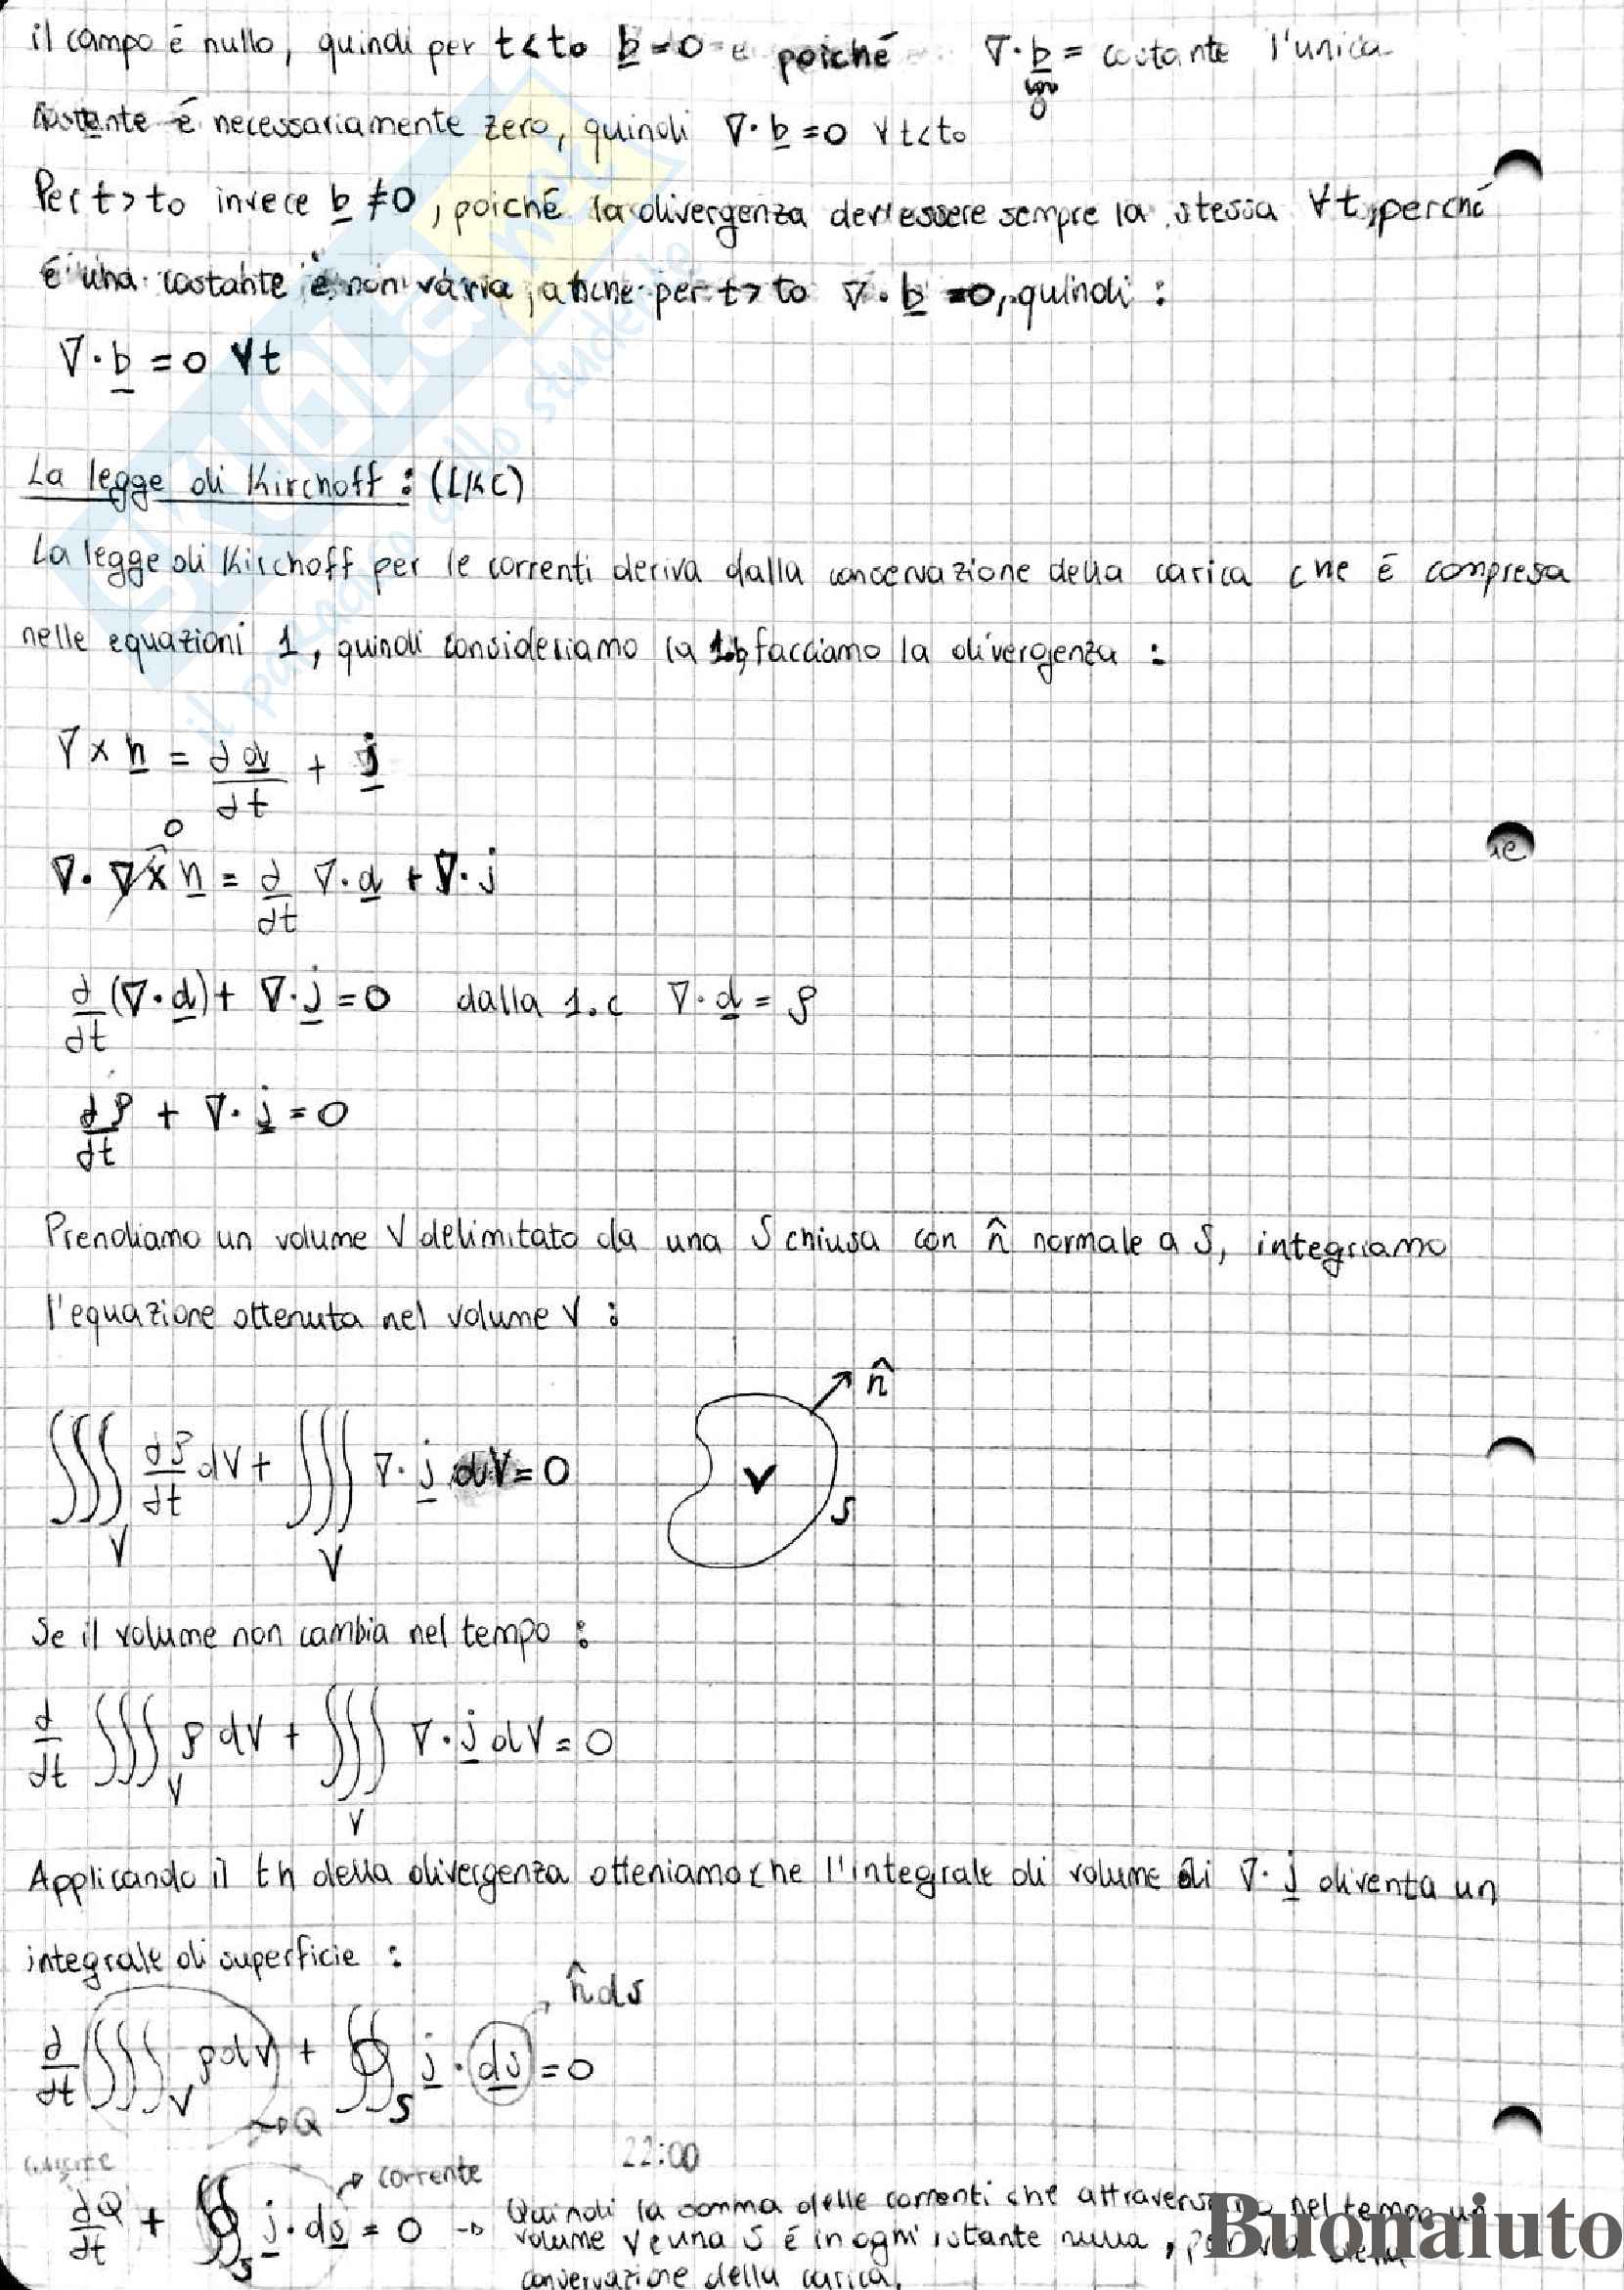 il campo é nullo, quindi per t<to b=0 e poiché ∇·b = costante l'unica
0
costante é necessariamente zero, quindi ∇·b=0 ∀t<to
Per t>to invece b≠0, poiché la divergenza dev'essere sempre la stessa ∀t, perché
é una costante e non varia, anche per t>to ∇·b=0, quindi:
∇·b=0 ∀t
La legge di Kirchoff: (LKC)
La legge di Kirchoff per le correnti deriva dalla conservazione della carica che é compresa
nelle equazioni 1, quindi consideriamo la 1.b, facciamo la divergenza:
∇×h = ∂d/∂t + j
0
∇·∇×h = ∂/∂t ∇·d + ∇·j
∂/∂t (∇·d) + ∇·j = 0 dalla 1.c ∇·d = ρ
∂ρ/∂t + ∇·j = 0
Prendiamo un volume V delimitato da una S chiusa con n̂ normale a S, integriamo
l'equazione ottenuta nel volume V:
∭V ∂ρ/∂t dV + ∭V ∇·j dV = 0
n̂
V
S
Se il volume non cambia nel tempo:
d/dt ∭V ρ dV + ∭V ∇·j dV = 0
Applicando il th della divergenza otteniamo che l'integrale di volume di ∇·j diventa un
integrale di superficie:
n̂ ds
∂/∂t ∭V ρdV + ∯S j·ds = 0
→ Q
22:00
→ corrente
∂Q/∂t + ∯S j·ds = 0 → Quindi la somma delle correnti che attraversano nel tempo un
volume V e una S é in ogni istante nulla, per via della
conservazione della carica.
SKUOLA.net
il paradiso dello studente
Buonaiuto